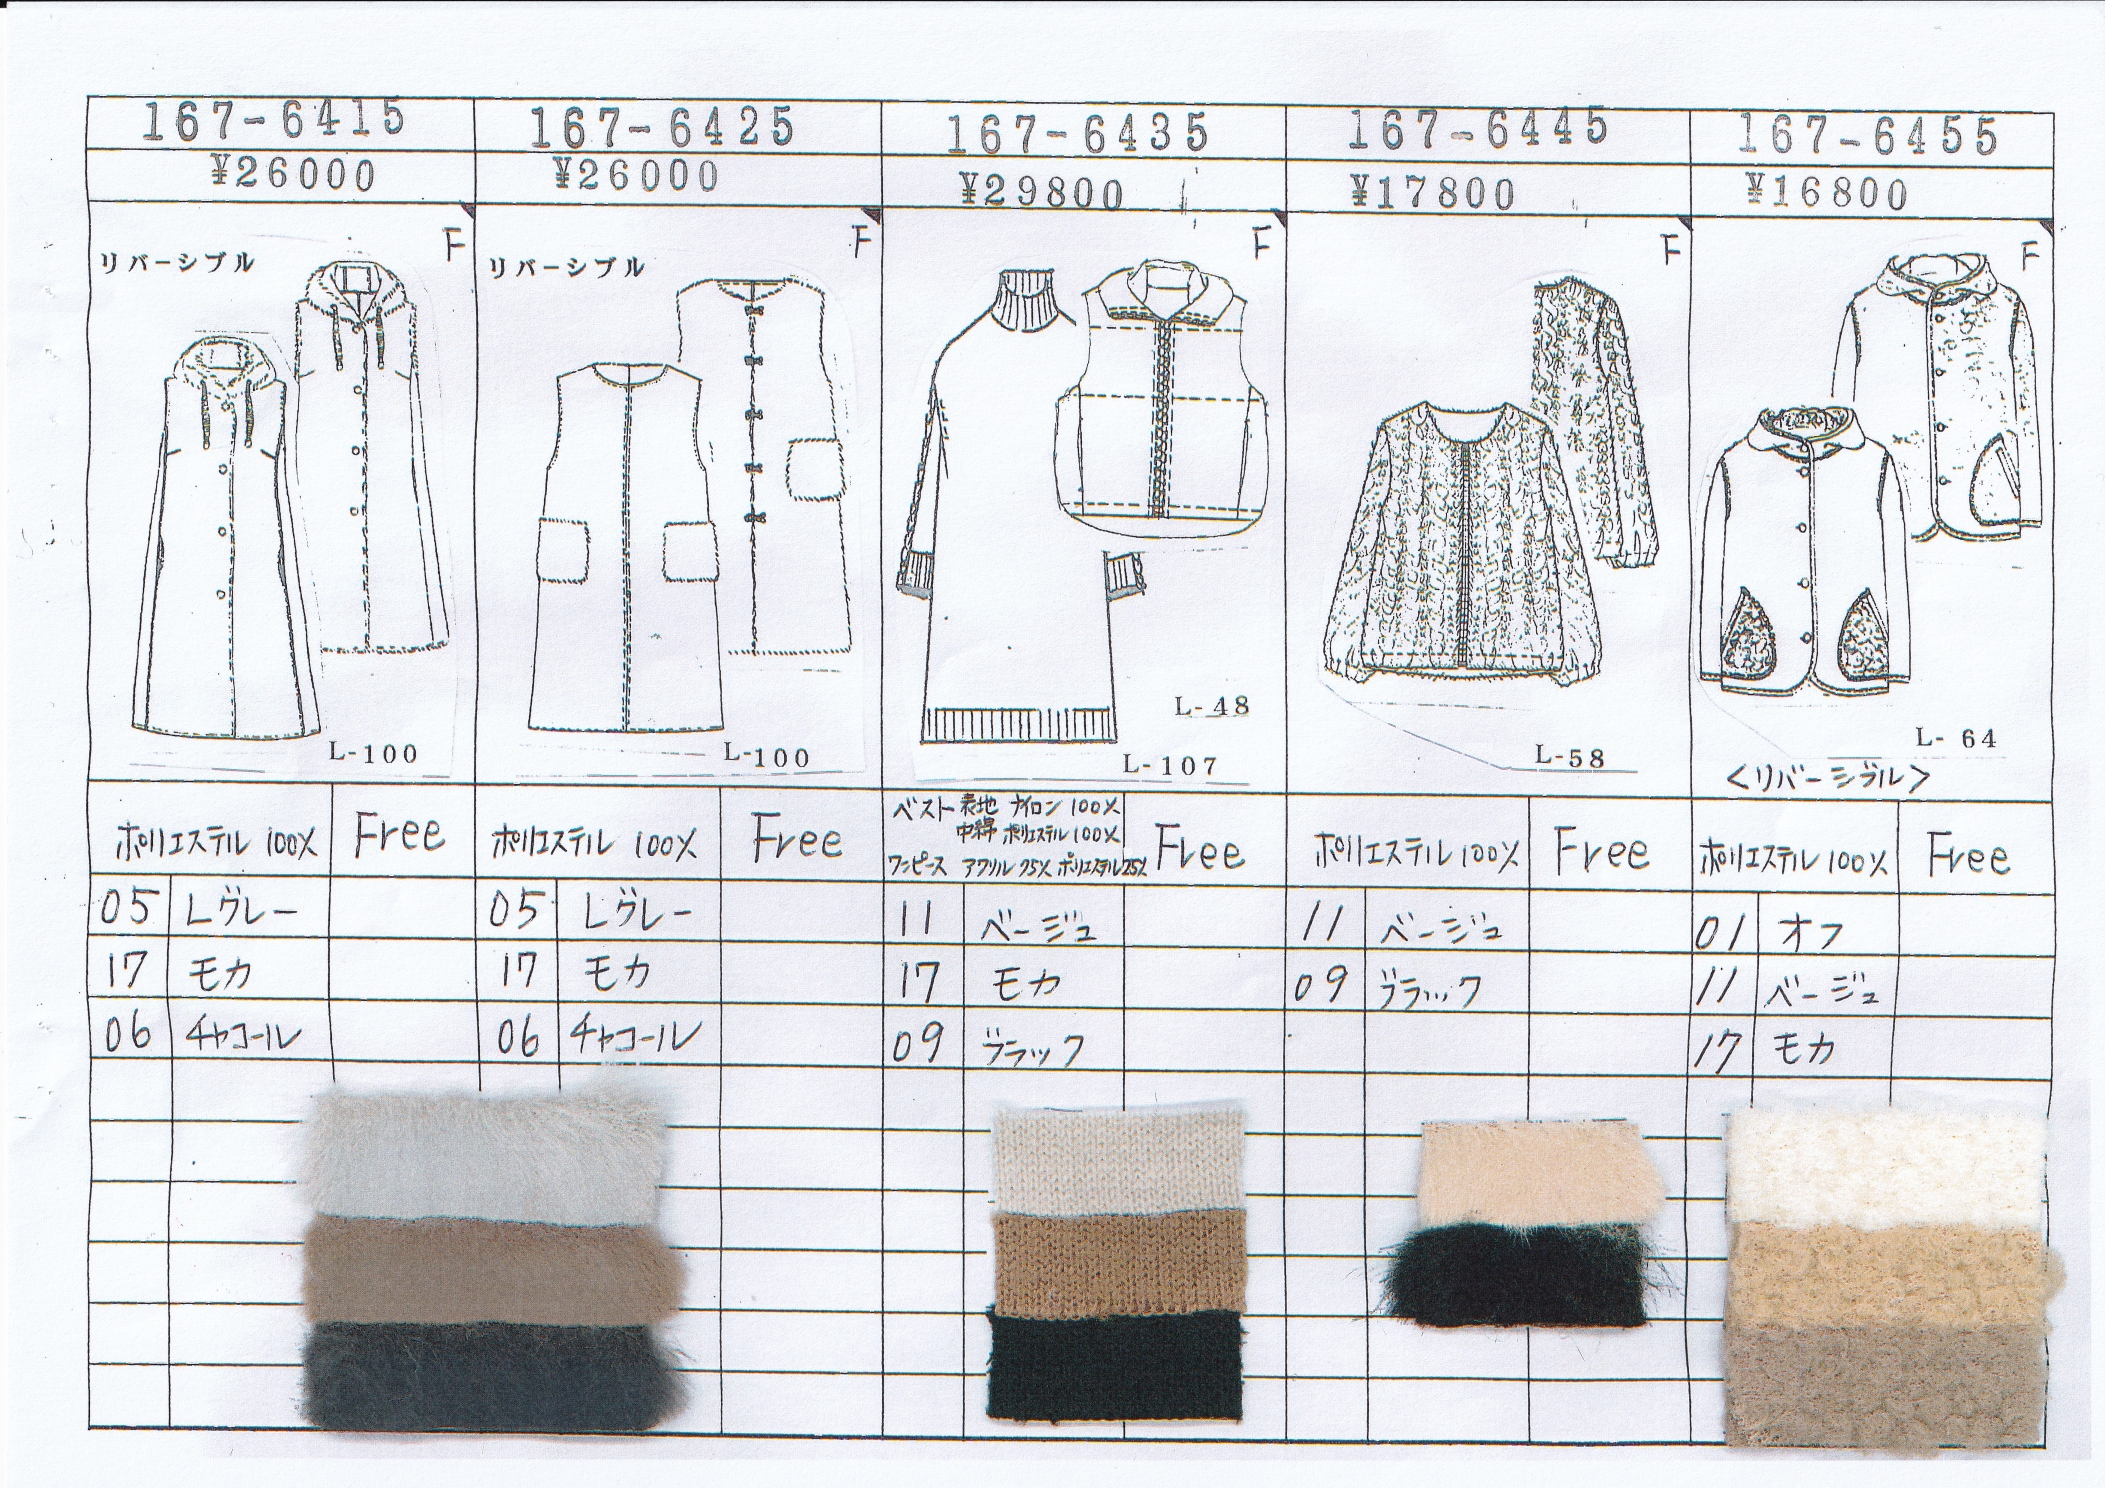 167-6415 167-6425 167-6435 167-6445 167-6455
¥26000 ¥26000 ¥29800 ¥17800 ¥16800
F F F F F
リバーシブル リバーシブル
L-48
L-100 L-100 L-107 L-58 L-64
<リバーシブル>
ポリエステル 100% Free ポリエステル 100% Free
ベスト 表地 ナイロン 100%
中綿 ポリエステル 100%
ワンピース アクリル 75% ポリエステル 25% Free
ポリエステル 100% Free ポリエステル 100% Free
05 Lグレー 05 Lグレー 11 ベージュ 11 ベージュ 01 オフ
17 モカ 17 モカ 17 モカ 09 ブラック 11 ベージュ
06 チャコール 06 チャコール 09 ブラック 17 モカ